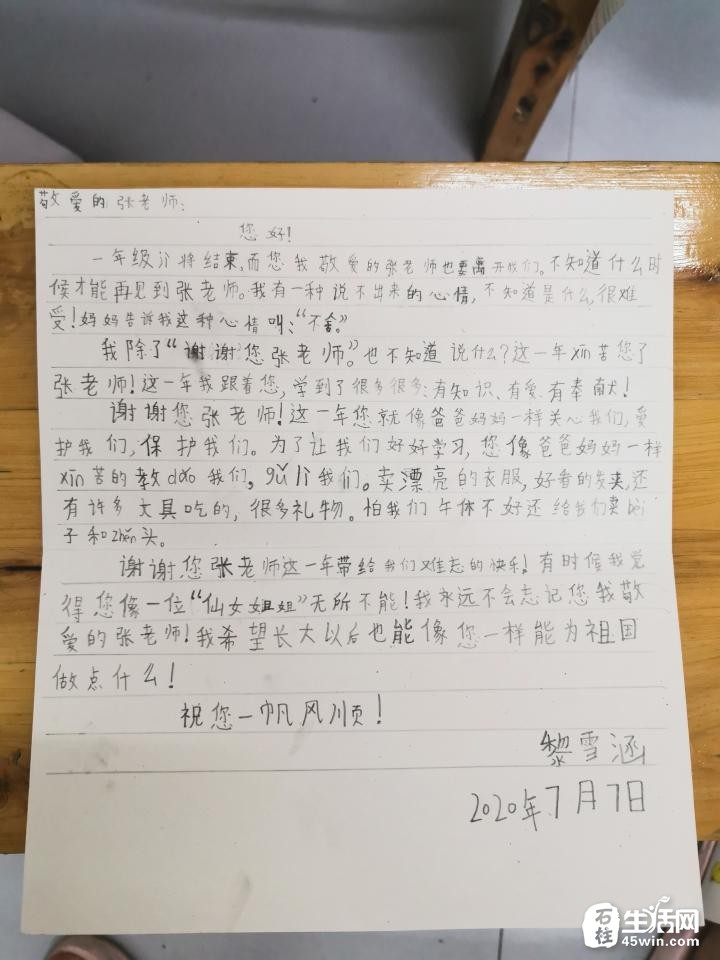 敬爱的张老师:
您好!
一年级即将结束,而您我敬爱的张老师也要离开我们。不知道什么时
候才能再见到张老师。我有一种说不出来的心情,不知道是什么,很难
受!妈妈告诉我这种心情叫:“不舍。”
我除了“谢谢您张老师。”也不知道说什么?这一年xīn苦您了
张老师!这一年我跟着您,学到了很多很多:有知识、有爱、有奉献!
谢谢您张老师!这一年您就像爸爸妈妈一样关心我们,爱
护我们,保护我们。为了让我们好好学习,您像爸爸妈妈一样
xīn苦的教dǎo我们。gǔ l我们。卖漂亮的衣服,好看的发夹,还
有许多文具吃的,很多礼物。怕我们午休不好还给我们卖bèi
子和zhěn头。
谢谢您张老师这一年带给我们难忘的快乐!有时候我觉
得您像一位“仙女姐姐”无所不能!我永远不会忘记您我敬
爱的张老师!我希望长大以后也能像您一样能为祖国
做点什么!
祝您一帆风顺!
黎雪涵
2020年7月7日
石柱生活网
45win.com